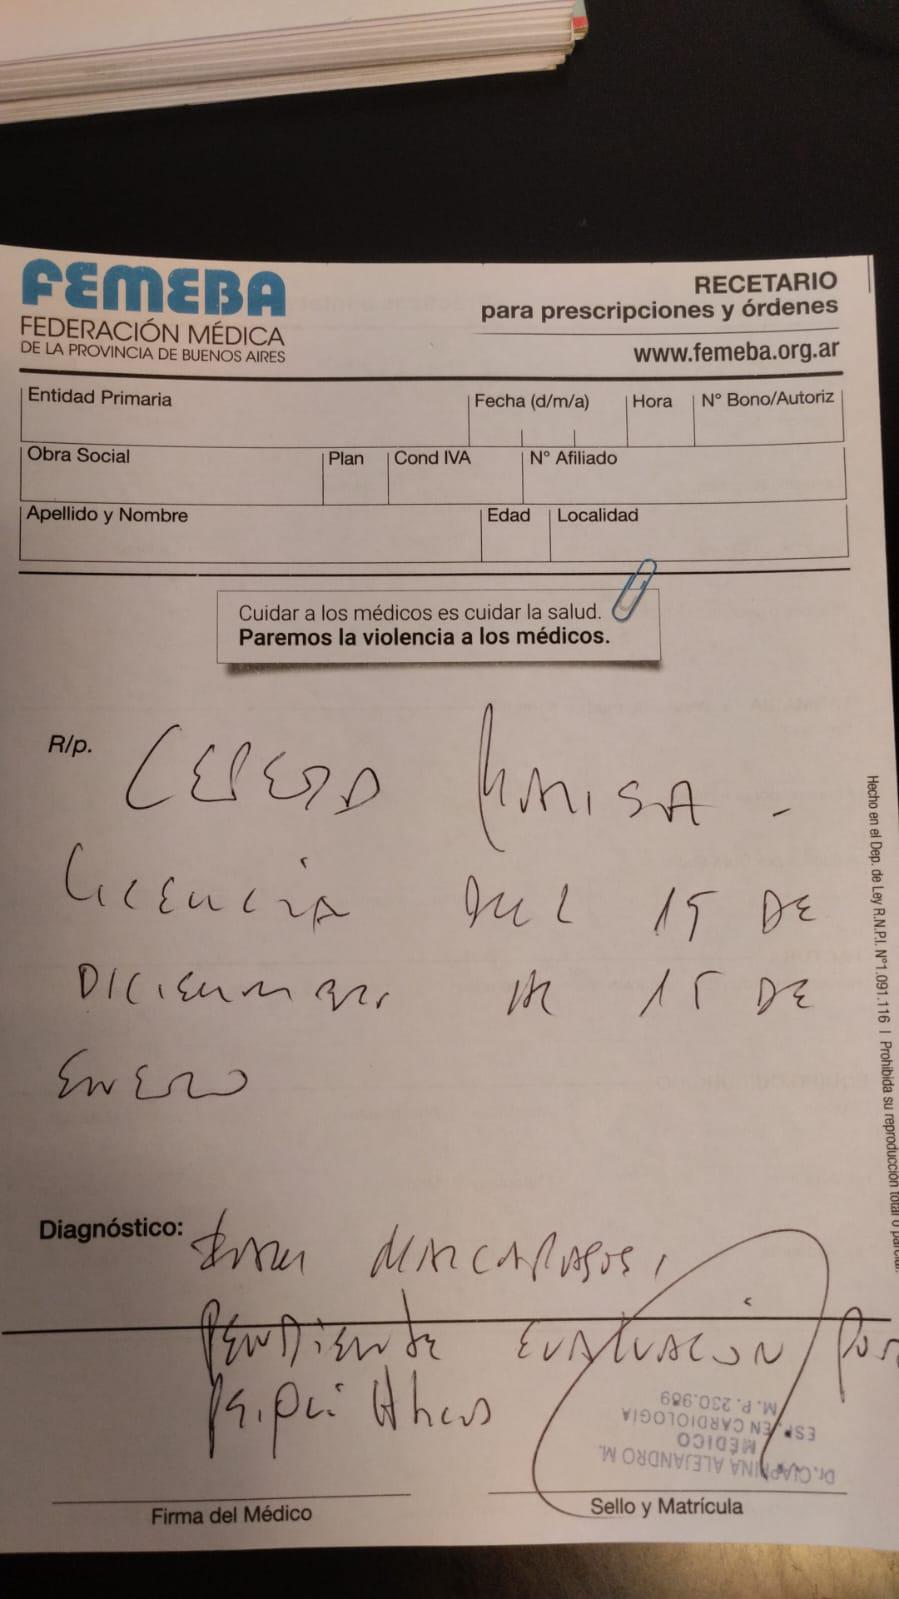 FEMEBA
FEDERACIÓN MÉDICA
DE LA PROVINCIA DE BUENOS AIRES
RECETARIO
para prescripciones y órdenes
www.femeba.org.ar
Entidad Primaria Fecha (d/m/a) Hora N° Bono/Autoriz
Obra Social Plan Cond IVA N° Afiliado
Apellido y Nombre Edad Localidad
Cuidar a los médicos es cuidar la salud.
Paremos la violencia a los médicos.
R/p.
Licencia del 15 DE
DICIEMBRE al 15 DE
ENERO
Diagnóstico: MARCAPASOS,
PENDIENTE EVALUACIÓN POR
M. P. 230.989
ESP. EN CARDIOLOGIA
MÉDICO
ALEJANDRO M.
Firma del Médico
Sello y Matrícula
Hecho en el Dep. de Ley R.N.P.I. N°1.091.116 | Prohibida su reproducción total o parcial